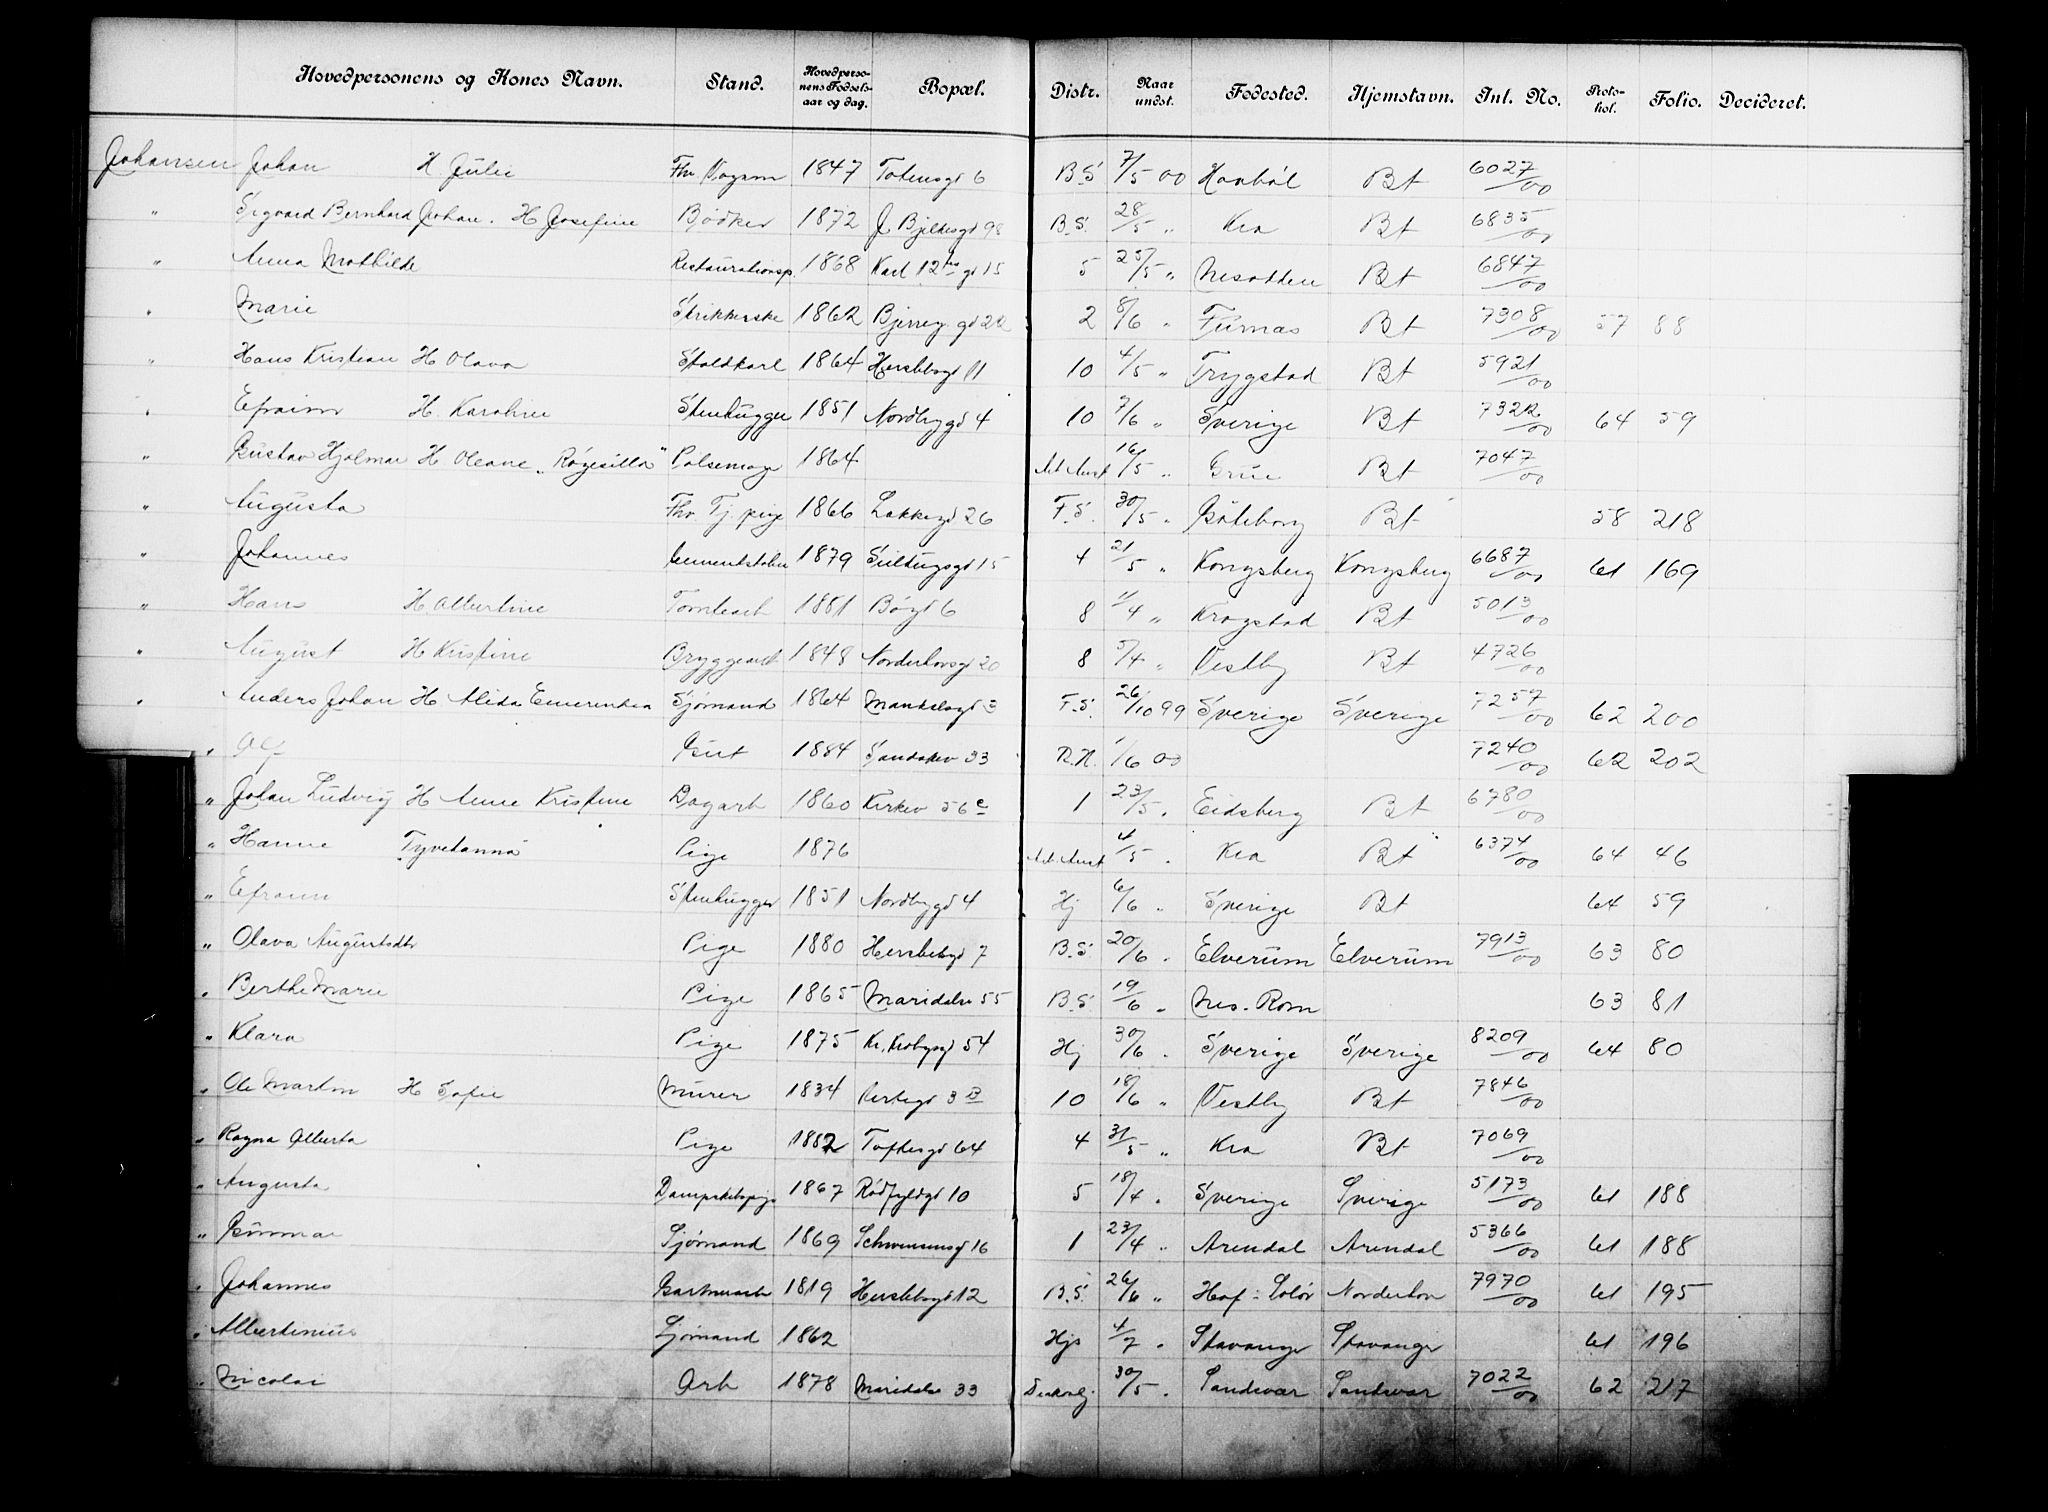 Hovedpersonens og Kones Navn. Stand. Hovedperso-nens Fødsels-aar og dag. Bopæl. Distr. Naar undst. Fødested. Hjemstavn. Int. No. Proto-kol. Folio. Decideret.
Johansen Johan H Julie Fhv Vognm 1847 Totensgd 6 B.S. 7/5 00 Havböl Bt 6027/00
" Sigvard Bernhard Johan. H Josefine Bødker 1872 J Bjelkesgd 98 B.S. 28/5 " Kra Bt 6835/00
" Anna Mathilde Restaurationsp. 1868 Karl 12tes gd 15 5 25/5 " Nesodden Bt 6847/00
" Marie Strikkerske 1862 Bjerreg. gd 22 2 8/6 " Furnæs Bt 7308/00 57 88
" Hans Kristian H Olava Staldkarl 1864 Herslebsgd 11 10 4/5 " Trygstad Bt 5921/00
" Efraim H. Karoline Stenhugger 1851 Nordbygd 4 10 7/6 " Sverige Bt 7322/00 64 59
" Gustav Hjalmar H Oleane "Røgesilla" Pølsemager 1864 Arb. Anst 16/5 " Grue Bt 7047/00
" Augusta Fhv. Tj. pige 1866 Lakkegd 26 F.S. 30/5 " Göteborg Bt 58 218
" Johannes Cementstøber 1879 Smedugsgd 15 4 21/5 " Kongsberg Kongsberg 6687/00 61 169
" Hans H Albertine Tomtearb 1851 Bøgd 6 8 11/4 " Krogstad Bt 5013/00
" August H Kristine Bryggearb 1848 Norderhovsgd 20 8 5/4 " Vestby Bt 4726/00
" Anders Johan H Alida Emerentsea Sjømand 1864 Mandalsgd 3 F.S. 26/10 99 Sverige Sverige 7257/00 62 200
" Alf Gut 1884 Sandakv 33 R.H. 1/6 00 7240/00 62 202
" Johan Ludvig H Anne Kristine Dagarb 1860 Kirkev 56 c 1 23/5 " Eidsberg Bt 6780/00
" Hanne Tyvetanna Pige 1876 Arb. Anst 4/5 " Kra Bt 6374/00 64 46
" Efraim Stenhugger 1851 Nordbygd 4 Hj 6/6 " Sverige Bt 64 59
" Olava Augustsdtr Pige 1880 Herslebsgd 7 B.S. 20/6 " Elverum Elverum 7913/00 63 80
" Berthe Marie Pige 1865 Maridalsv 55 B.S. 19/6 " Nes. Rom 63 81
" Klara Pige 1875 Kr. Krohgsgd 54 Hj 30/6 " Sverige Sverige 8209/00 64 80
" Ole Martin H Sofie Murer 1834 Vertsgd 3 B 10 18/6 " Vestby Bt 7846/00
" Ragna Alberta Pige 1882 Toftesgd 64 4 31/5 " Kra Bt 7069/00
" Augusta Dampskibspige 1867 Rødfyldgd 10 5 18/4 " Sverige Sverige 5173/00 61 188
" Gunnar Sjømand 1869 Schwensensgd 16 1 23/4 " Arendal Arendal 5366/00 61 188
" Johannes Gartnerarb 1819 Herslebsgd 12 B.S. 26/6 " Hof - Solør Norderhov 7970/00 61 195
" Albertinius Sjømand 1862 Hjs 4/7 " Stavanger Stavanger 61 196
" Nicolai Arb 1878 Maridalsv 33 Diakonhj. 30/5 " Sandsvær Sandsvær 7022/00 62 217